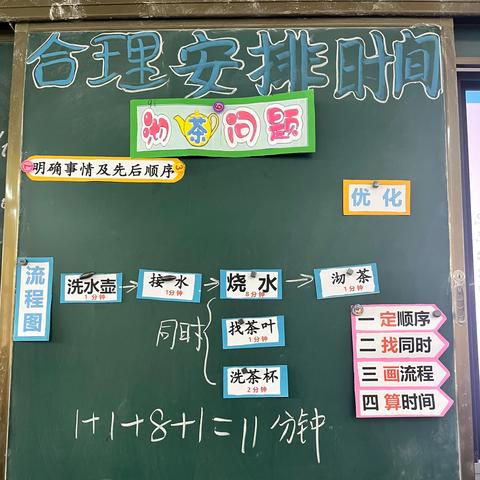 合理安排时间
沏茶问题
明确事情及先后顺序
优化
流程图
洗水壶 1分钟
接水 1分钟
烧水 8分钟
沏茶 1分钟
同时
找茶叶 1分钟
洗茶杯 2分钟
一 定顺序
二 找同时
三 画流程
四 算时间
1+1+8+1=11分钟